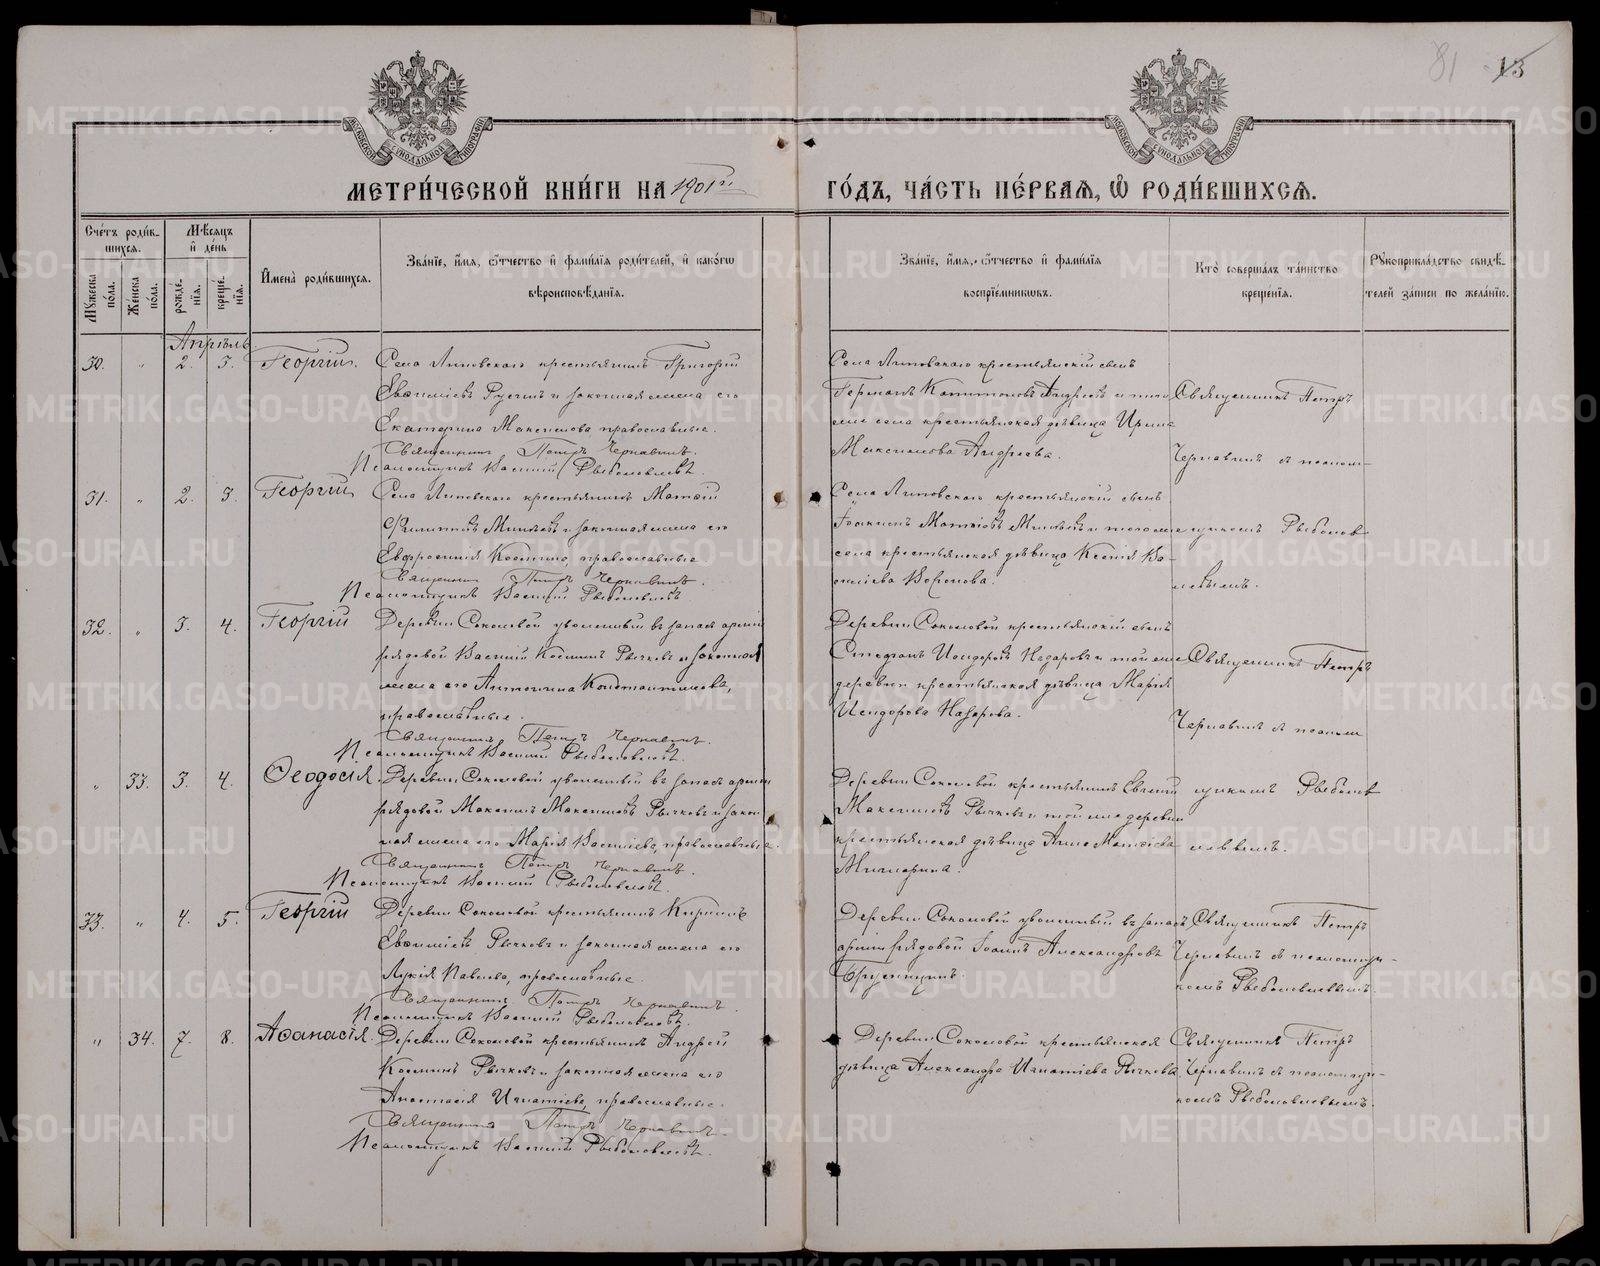 81 13
МОСКОВСКОЙ СѴНОДАЛЬНОЙ ТИПОГРАФІИ
МОСКОВСКОЙ СѴНОДАЛЬНОЙ ТИПОГРАФІИ
МЕТРИ́ЧЕСКОЙ КНИ́ГИ НА 1901 г.
ГО́ДЪ, ЧА́СТЬ ПЕ́РВАѦ, Ѽ РОДИ́ВШИХСѦ.
Сче́тъ роди́в-
шихсѧ.
Мꙋжеска по́ла.
Же́нска по́ла.
Мѣ́сѧцъ
и҆ де́нь
рожде́-
нїѧ.
креще́-
нїѧ.
И҆мена̀ роди́вшихсѧ.
Зва́нїе, и҆́мѧ, ѻ҆́тчество и҆ фами́лїѧ роди́телей, и҆ како́гѡ
вѣроисповѣ́данїѧ.
Зва́нїе, и҆́мѧ, ѻ҆́тчество и҆ фами́лїѧ
воспрїе́мникѡвъ.
Кто̀ соверша́лъ та́инство
креще́нїѧ.
Рꙋкоприкла́дство свидѣ́-
телей за́писи по жела́нїю.
Апрѣль
30. " 2. 3. Георгій. Села Липовскаго крестьянинъ Григорій
Евѳиміевъ Русинъ и законная жена его
Екатерина Максимова, православные.
Священникъ Петръ Чернавинъ.
Псаломщикъ Василій Рыболовлевъ.
Села Липовскаго крестьянскій сынъ
Германъ Капитоновъ Андреевъ и того
же села крестьянская дѣвица Ирина
Максимова Андреева.
Священникъ Петръ
Чернавинъ съ псалом-
31. " 2. 3. Георгій Села Липовскаго крестьянинъ Матѳій
Филипповъ Минѣевъ и законная жена его
Евфросинія Космина, православные
Священникъ Петръ Чернавинъ.
Псаломщикъ Василій Рыболовлевъ
Села Липовскаго крестьянскій сынъ
Іоакимъ Матѳіевъ Минѣевъ и того же
села крестьянская дѣвица Ксенія Ва-
силіева Воронова.
щикомъ Рыболов-
левымъ.
32. " 3. 4. Георгій Деревни Соколовой уволенный въ запасъ арміи
рядовой Василій Косминъ Рычковъ и законная
жена его Антонина Константинова,
православные.
Священникъ Петръ Чернавинъ.
Псаломщикъ Василій Рыболовлевъ.
Деревни Соколовой крестьянскій сынъ
Стефанъ Исидоровъ Назаровъ и той же
деревни крестьянская дѣвица Марія
Исидорова Назарова.
Священникъ Петръ
Чернавинъ съ псалом
" 33. 3. 4. Ѳеодосія. Деревни Соколовой уволенный въ запасъ арміи
рядовой Максимъ Максимовъ Рычковъ и закон
ная жена его Марія Василіева, православные.
Священникъ Петръ Чернавинъ.
Псаломщикъ Василій Рыболовлевъ.
Деревни Соколовой крестьянинъ Евгеній
Максимовъ Рычковъ и той же деревни
крестьянская дѣвица Анна Матѳіева
щикомъ Рыболов
левымъ.
33. " 4. 5. Георгій Деревни Соколовой крестьянинъ Кириллъ
Евѳиміевъ Рычковъ и законная жена его
Лукія Павлова, православные.
Священникъ Петръ Чернавинъ.
Псаломщикъ Василій Рыболовлевъ.
Деревни Соколовой уволенный въ запасъ
арміи рядовой Іоаннъ Александровъ
Священникъ Петръ
Чернавинъ съ псаломщи-
комъ Рыболовлевымъ.
" 34. 7. 8. Аѳанасія. Деревни Соколовой крестьянинъ Андрей
Косминъ Рычковъ и законная жена его
Анастасія Игнатіева, православные.
Священникъ Петръ Чернавинъ.
Псаломщикъ Василій Рыболовлевъ.
Деревни Соколовой крестьянская
дѣвица Александра Игнатіева Рычкова
Священникъ Петръ
Чернавинъ съ псаломщи-
комъ Рыболовлевымъ.
METRIKI.GASO-URAL.RU